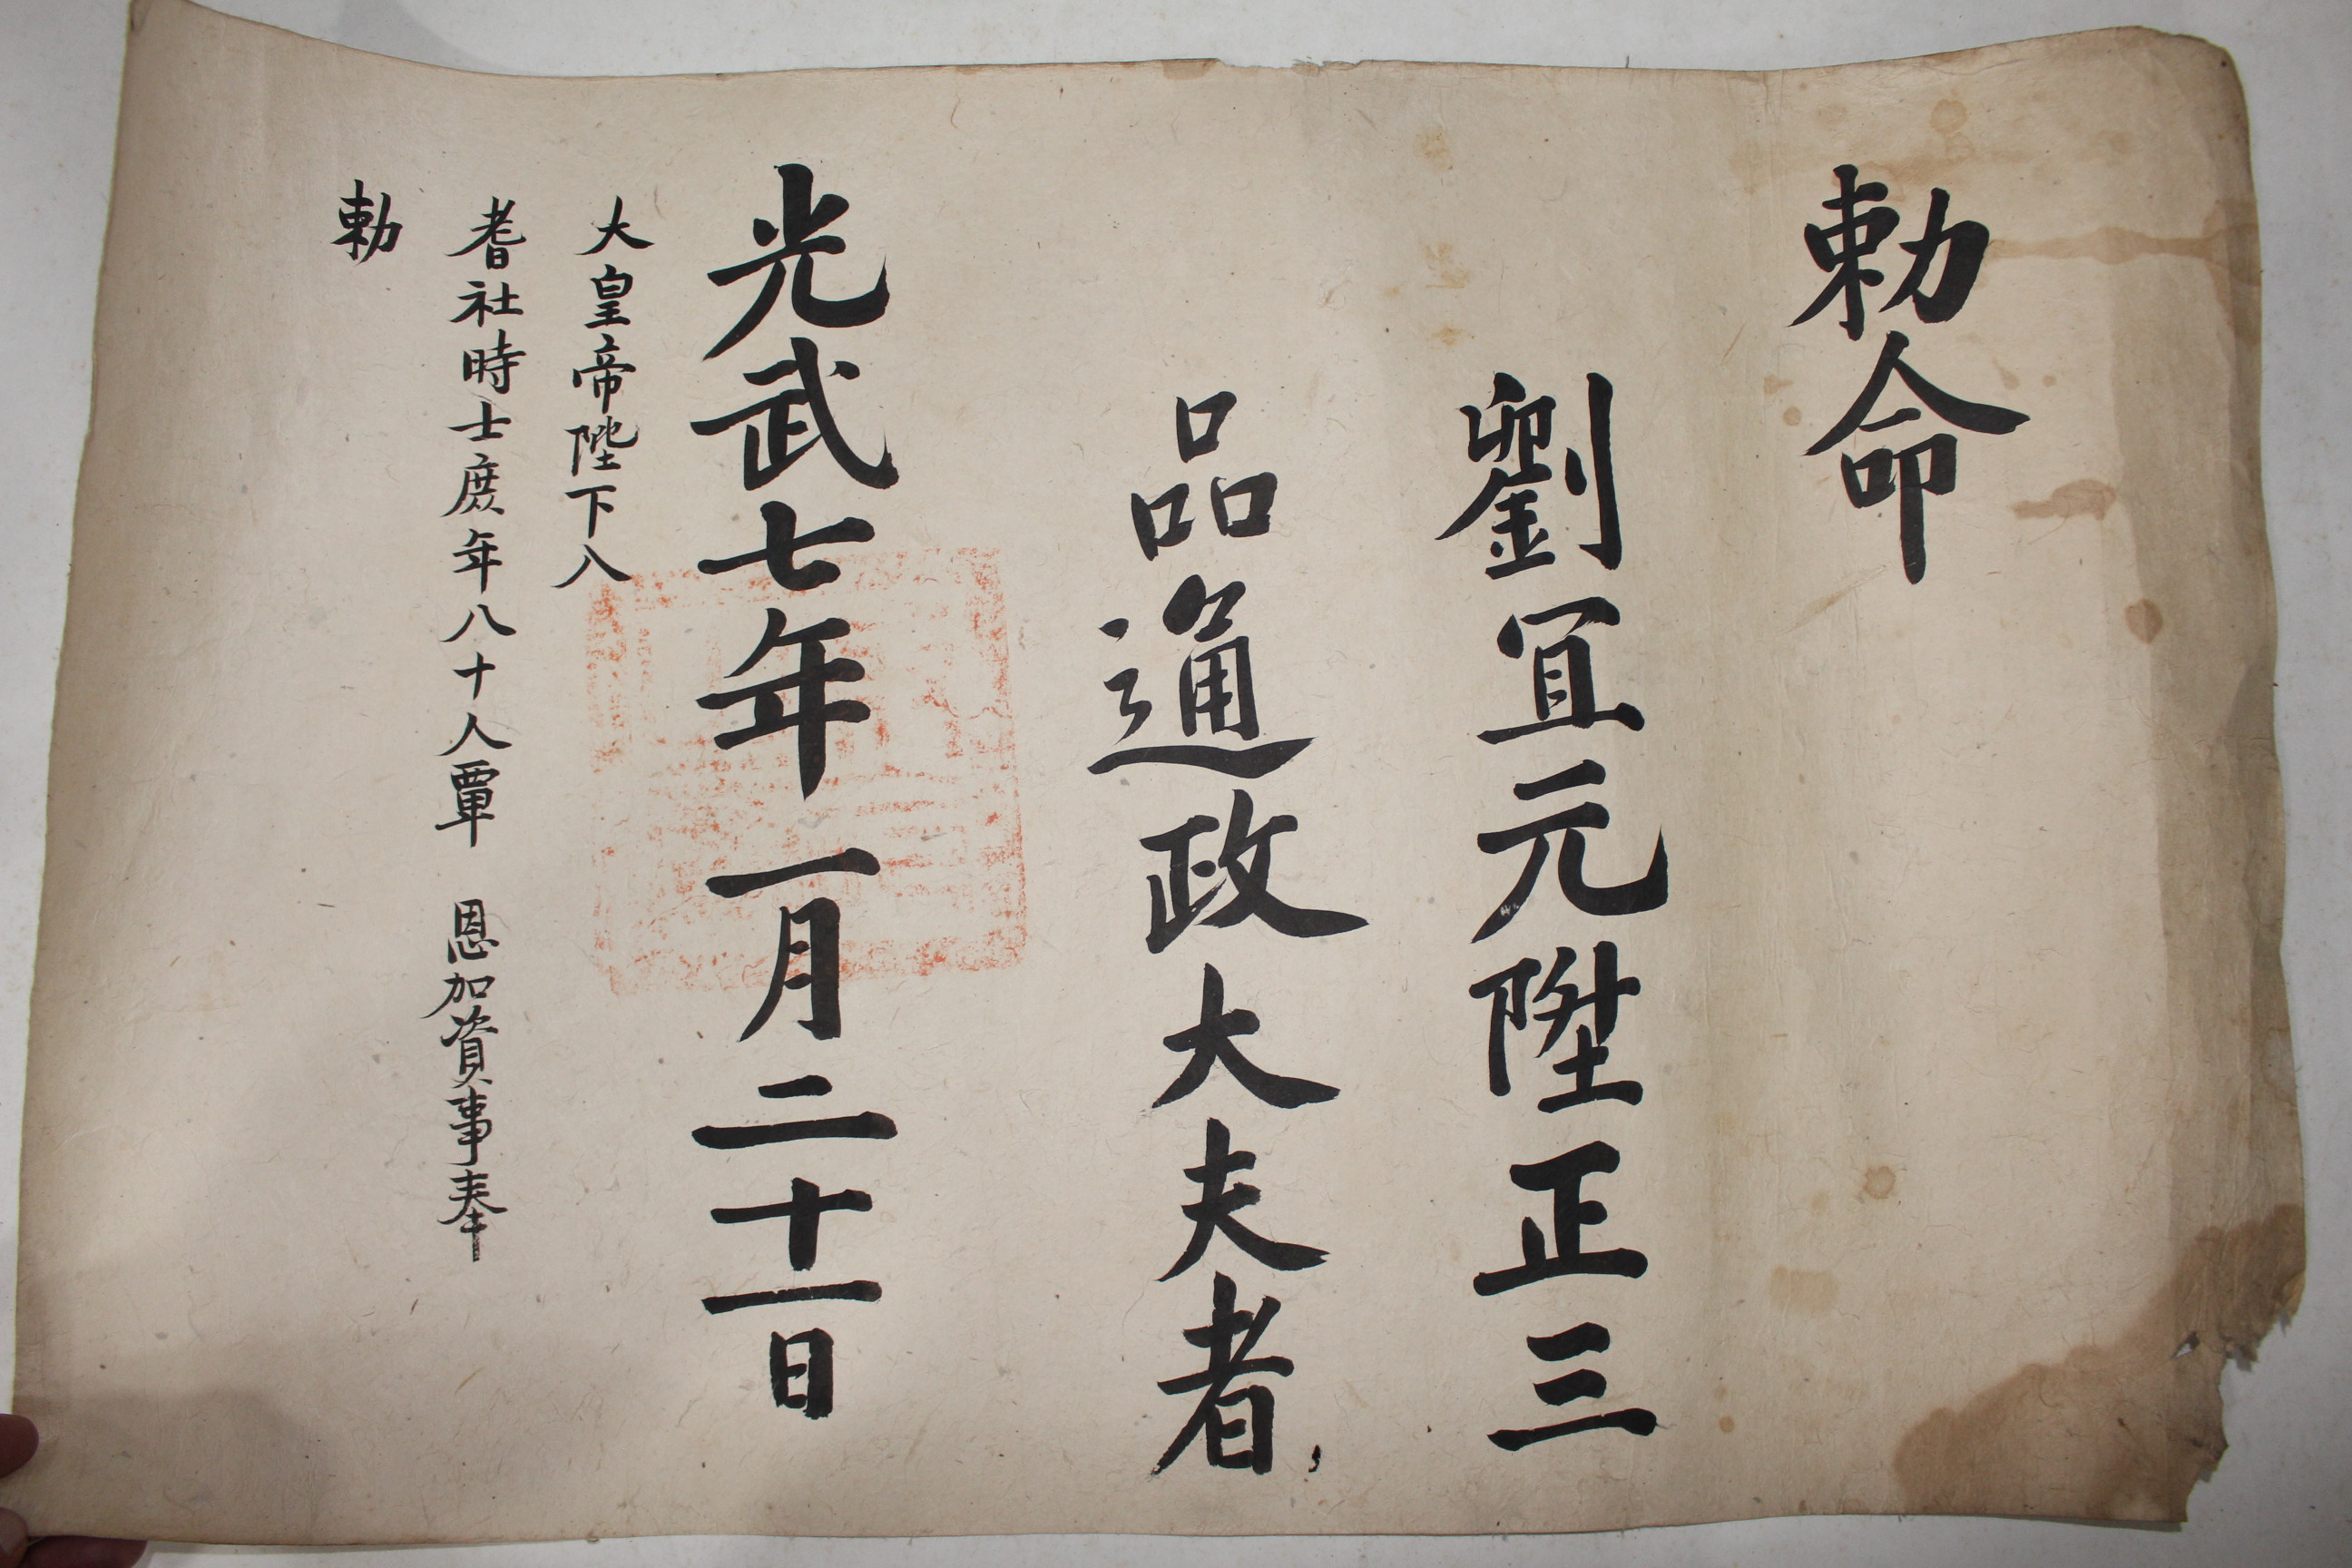 勅命
劉冝元陞正三
品通政大夫者
光武七年一月二十一日
大皇帝陛下入
耆社時士庶年八十人覃 恩加資事奉
勅